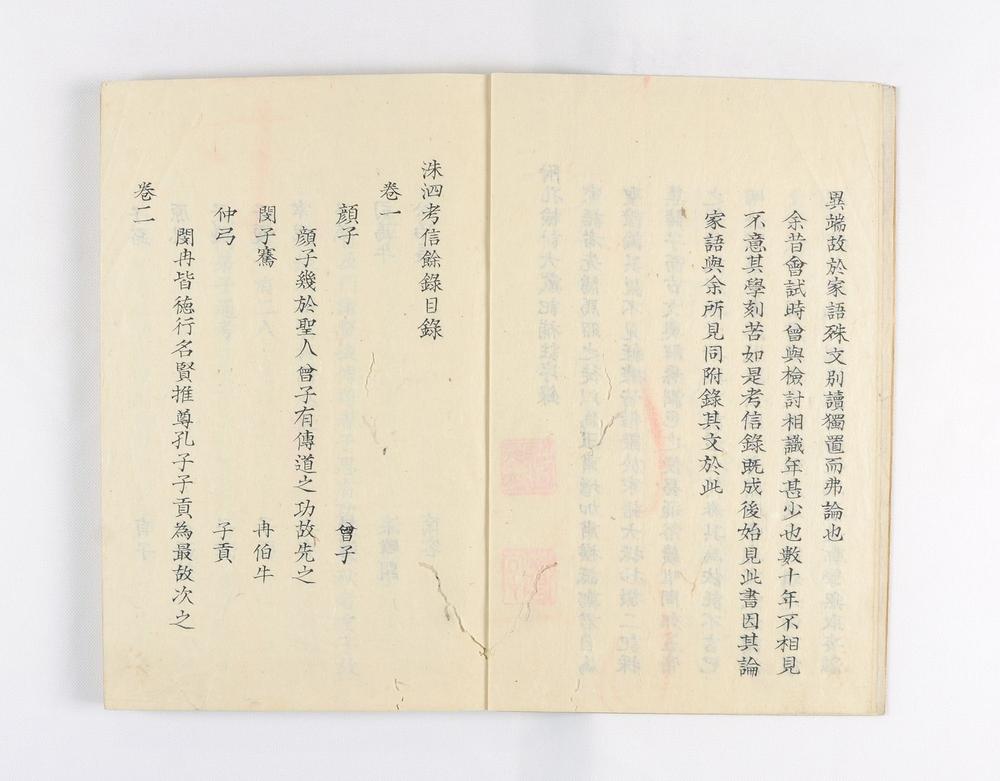 異端故於家語殊文別讀獨置而弗論也
余昔會試時曾與檢討相識年甚少也數十年不相見
不意其學刻苦如是考信錄既成後始見此書因其論
家語與余所見同附錄其文於此
洙泗考信餘錄目錄
卷一
顏子 曾子
顏子幾於聖人曾子有傳道之功故先之
閔子騫 冉伯牛
仲弓 子貢
閔冉皆徳行名賢推尊孔子子貢為最故次之
卷二